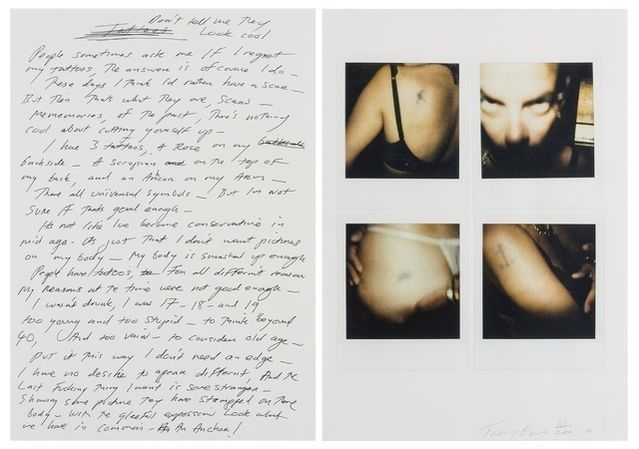 Don't tell me They
Tattoos Look cool
People sometimes ask me If I regret
my tattoos, The answer is ofcourse I do _
These days I think I'd rather have a scar _
But Then Thats what They are, Scars _
Mememories, of The past, There's nothing
cool about cutting yourself up _
I have 3 tattoos, A Rose on my
backside _ A scorping on the top of
my back, and an Ancor on my Arm _
There all universal symbols _ But Im not
Sure If thats good enough _
Its not like Ive become conservative in
mid age _ Its just That I don't want pictures
on my body _ My body is smashed up enough
People have tattoos, For all different reason
My reasons at te time were not good enough _
I wasn't drunk, I was 17 - 18 - and 19
too young and too Stupid _ to Think beyond
40, And too vain _ to consider old age _
PUT it this way I don't need an edge _
I have no desire to apear different, And te
Last Fucking Thing I want is some stranger _
Showing some picture They have stamped on There
body _ With the gleeful expression Look what
we have in common _ An Anchor!